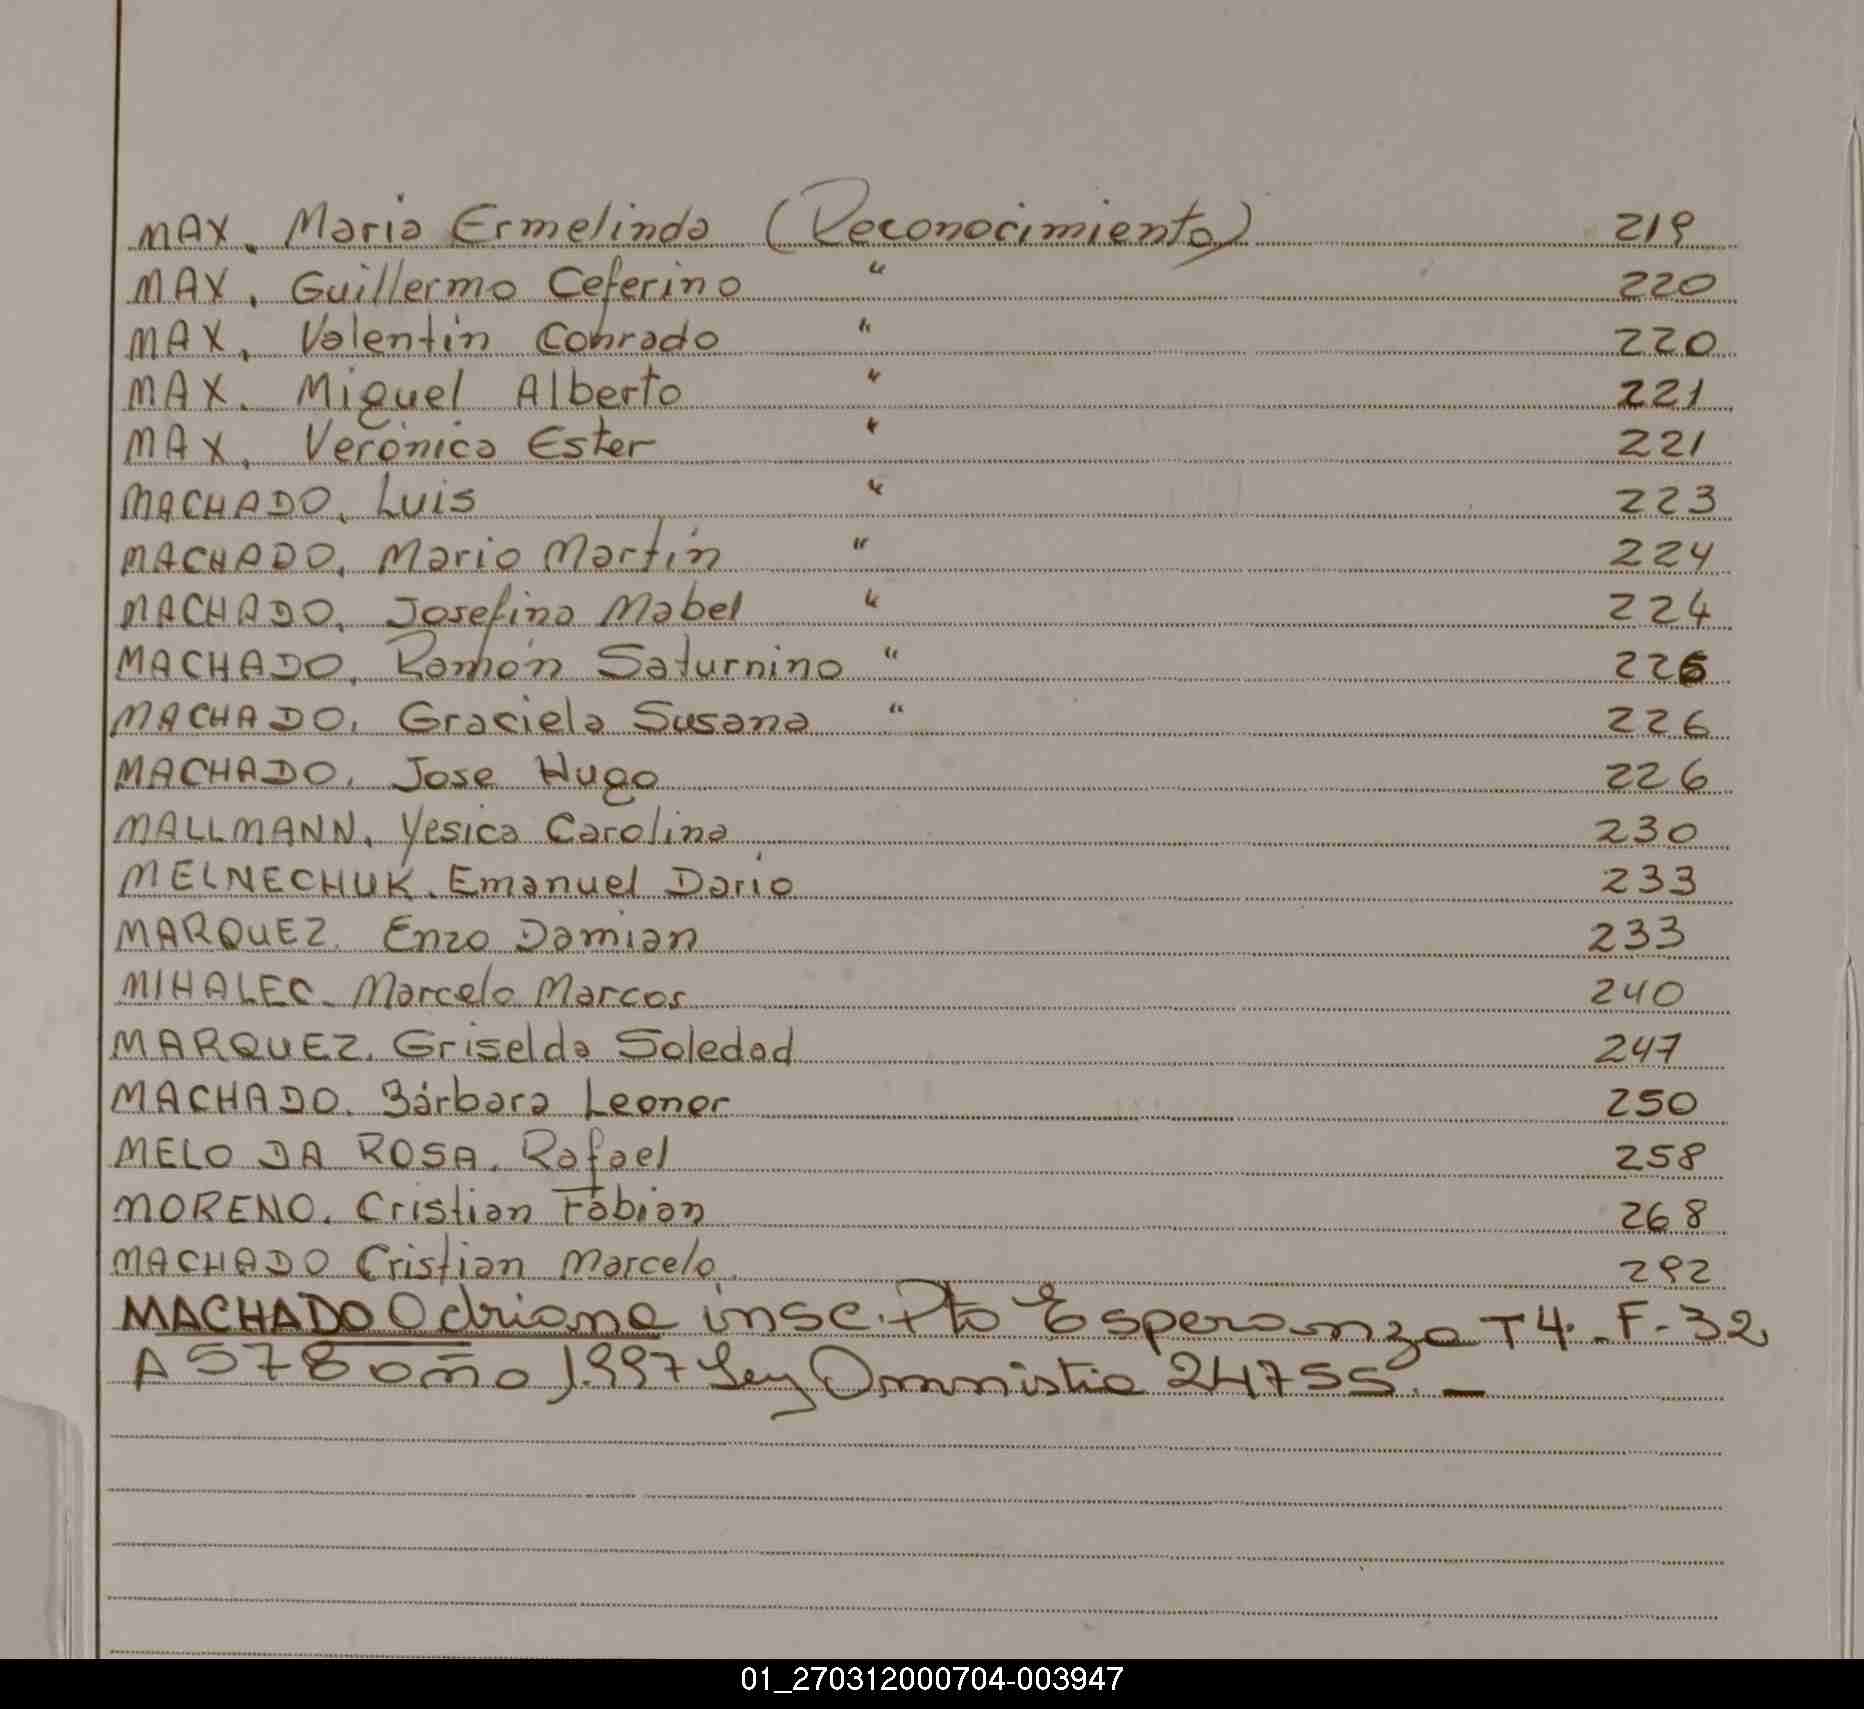 MAX, Maria Ermelinda (Reconocimiento) 219
MAX, Guillermo Ceferino " 220
MAX, Valentin Conrado " 220
MAX, Miguel Alberto " 221
MAX, Verónica Ester " 221
MACHADO, Luis " 223
MACHADO, Mario Martín " 224
MACHADO, Josefina Mabel " 224
MACHADO, Ramón Saturnino " 225
MACHADO, Graciela Susana " 226
MACHADO, Jose Hugo 226
MALLMANN, Yesica Carolina 230
MELNECHUK, Emanuel Dario 233
MARQUEZ, Enzo Damian 233
MIHALEC, Marcelo Marcos 240
MARQUEZ, Griselda Soledad 247
MACHADO, Bárbara Leonor 250
MELO DA ROSA, Rafael 258
MORENO, Cristian Fabian 268
MACHADO Cristian Marcelo 292
MACHADO Adriana insc. Pto Esperanza T4. F-32
A 578 año 1.997 Ley Amnistia 24755. —
01_270312000704-003947